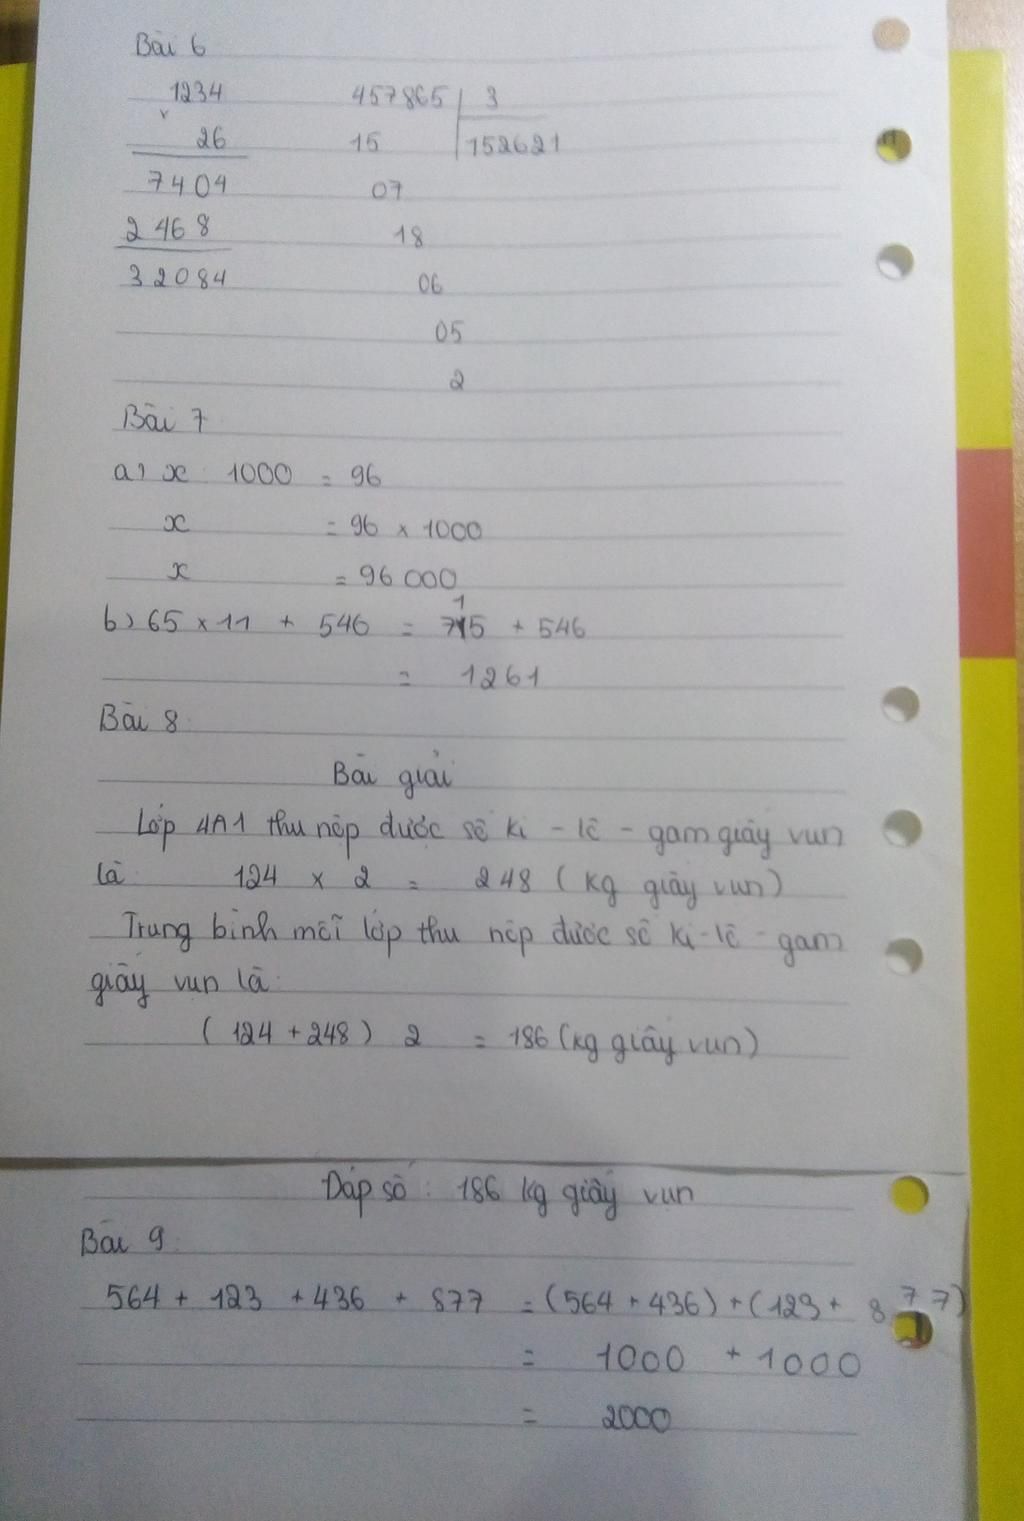 Bài 6
1234 457865 | 3
x
26 15 152621
7404 07
2468 18
32084 06
05
2
Bài 7
a) x 1000 = 96
x = 96 x 1000
x = 96 000
1
b) 65 x 11 + 546 = 715 + 546
= 1261
Bài 8:
Bài giải
Lớp 4A1 thu nộp được số ki - lô - gam giấy vụn
là: 124 x 2 = 248 ( kg giấy vụn)
Trung bình mỗi lớp thu nộp được số ki-lô-gam
giấy vụn là:
( 124 + 248 ) 2 = 186 (kg giấy vụn)
Đáp số : 186 kg giấy vụn
Bài 9:
564 + 123 + 436 + 877 = (564 + 436) + (123 + 877)
= 1000 + 1000
= 2000